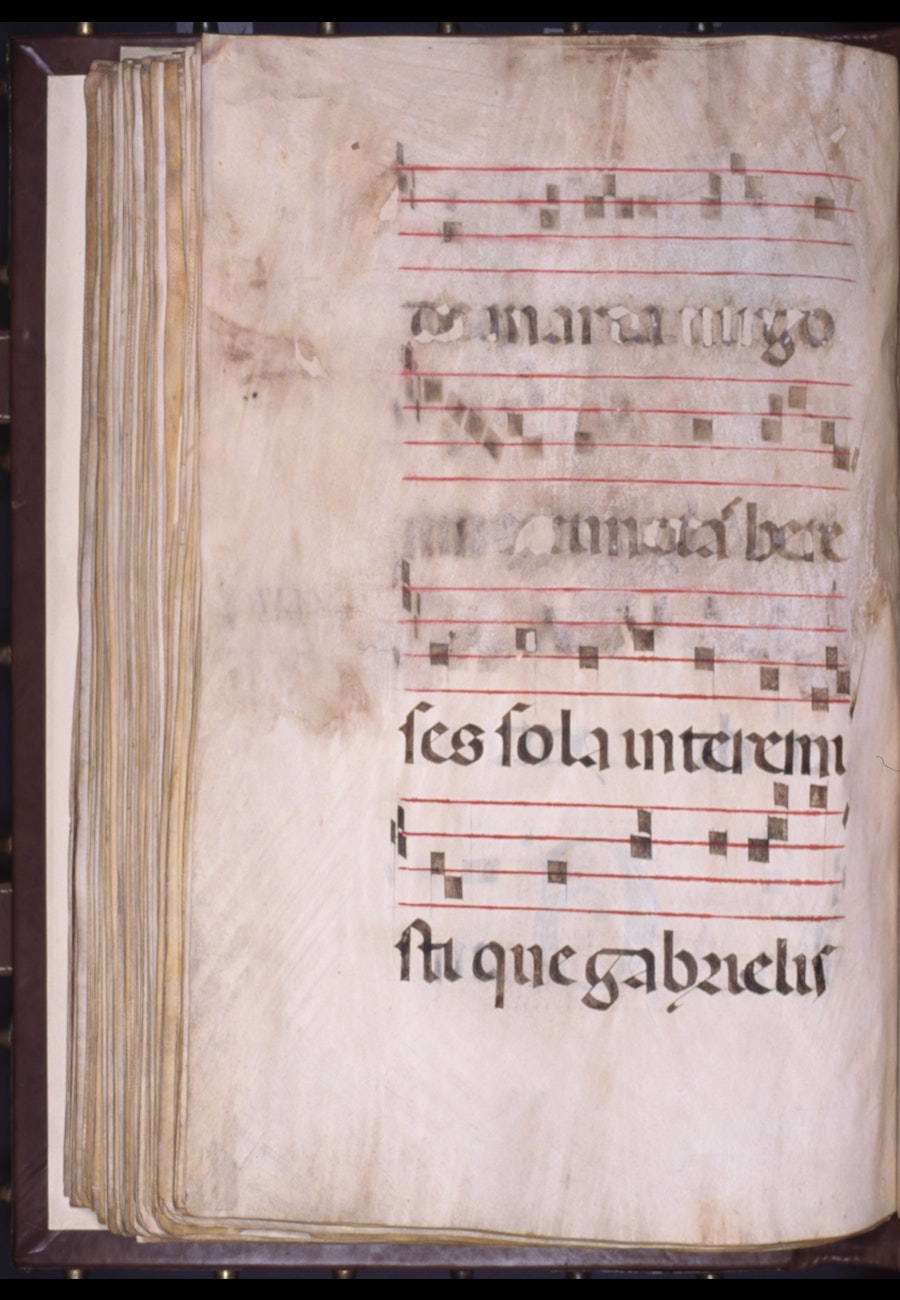 de maria uirgo
here
ses sola interemi
sti que gabrielis